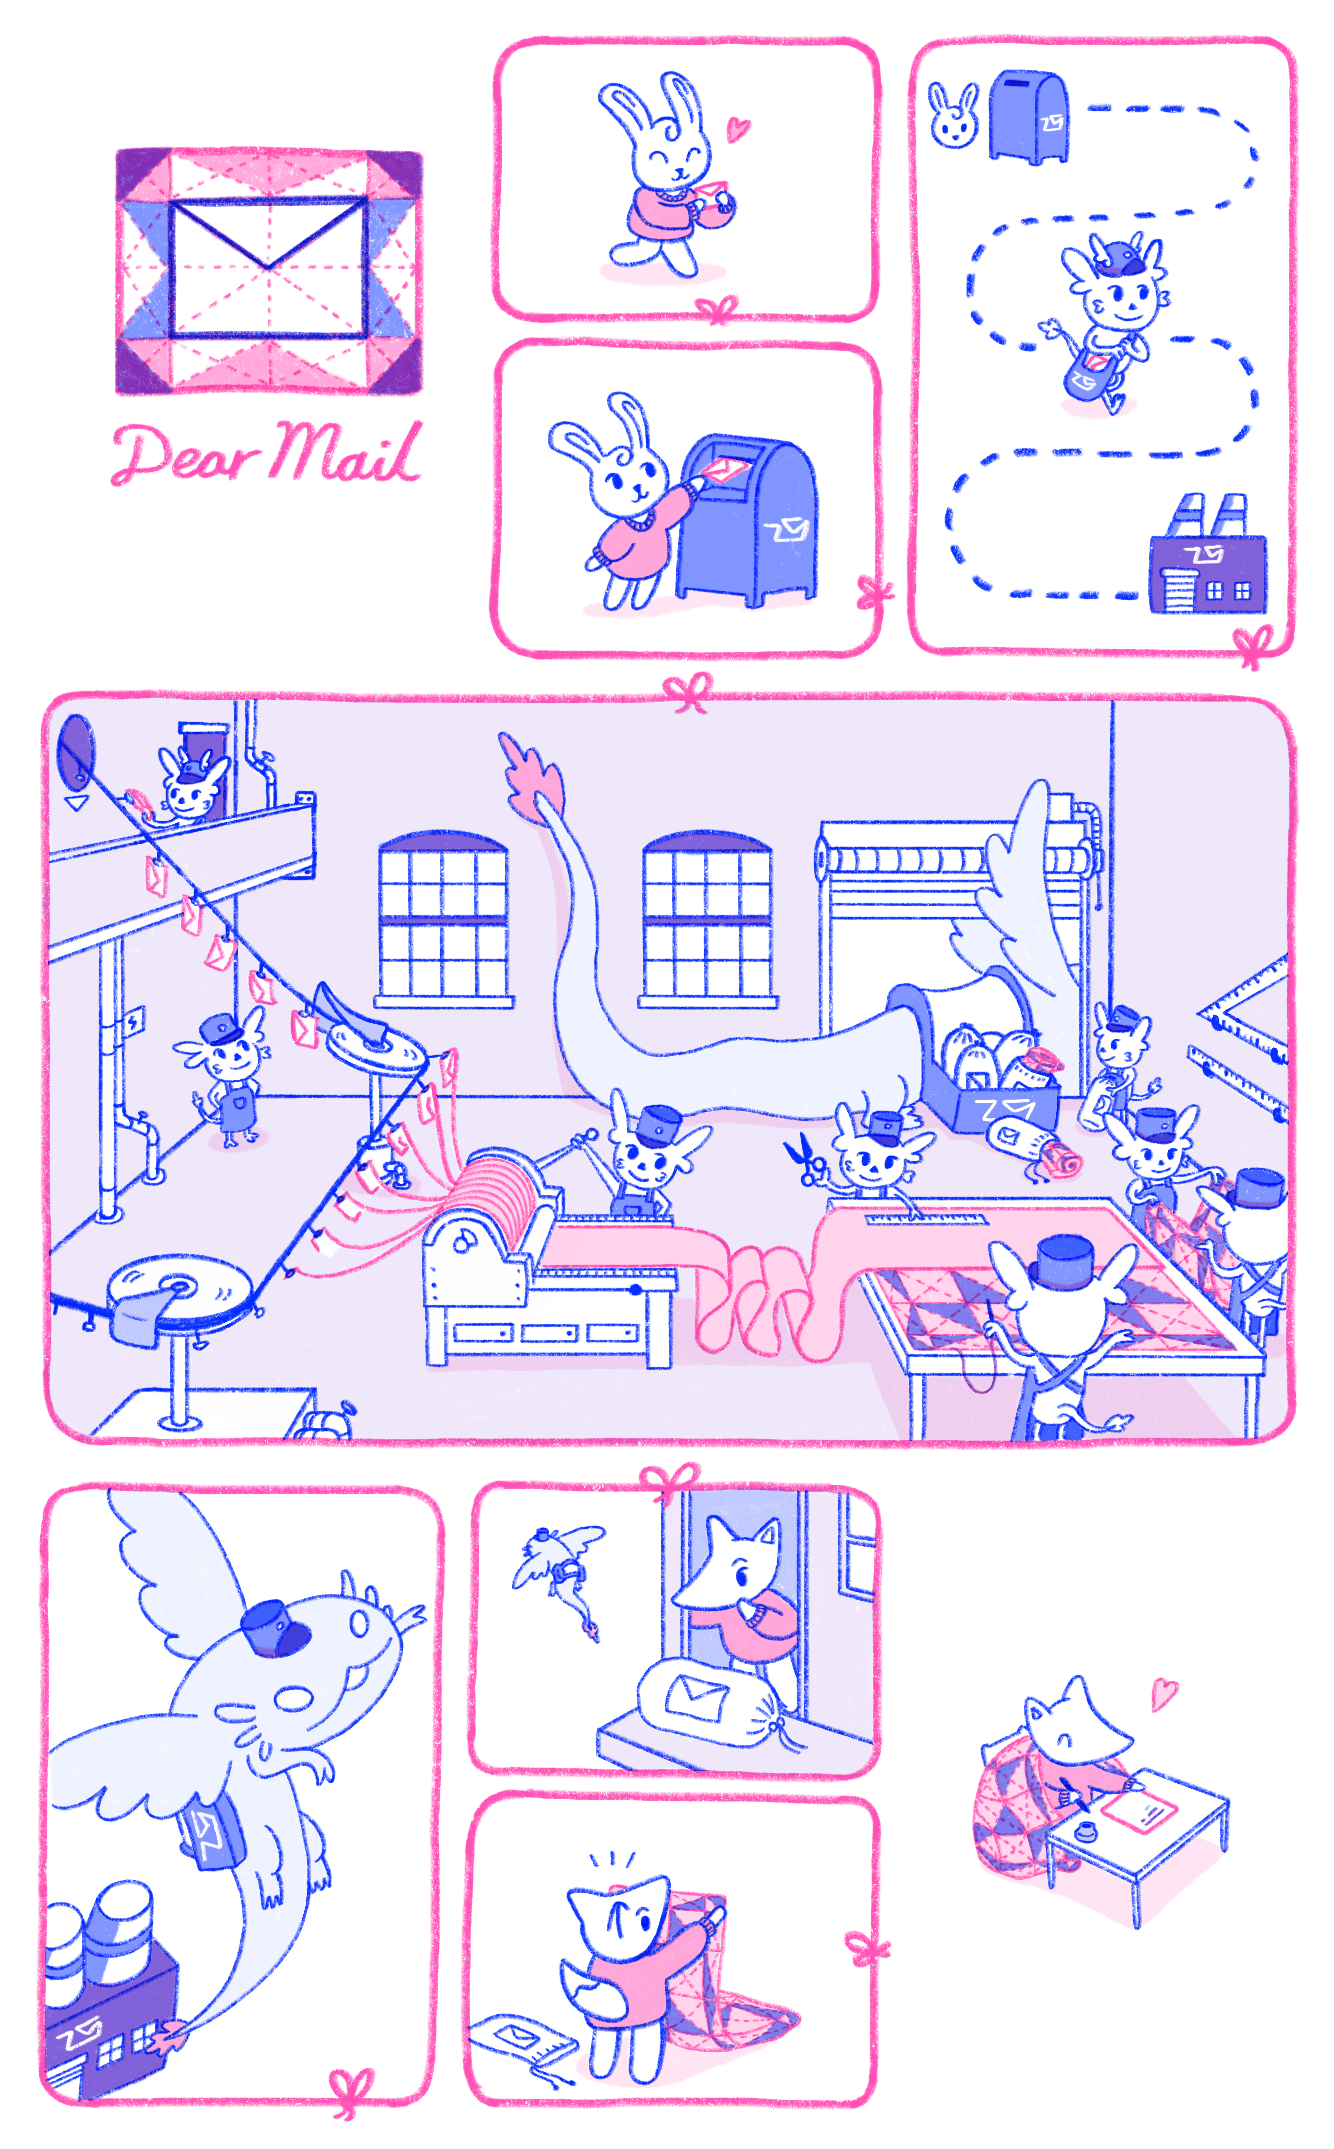 Dear Mail